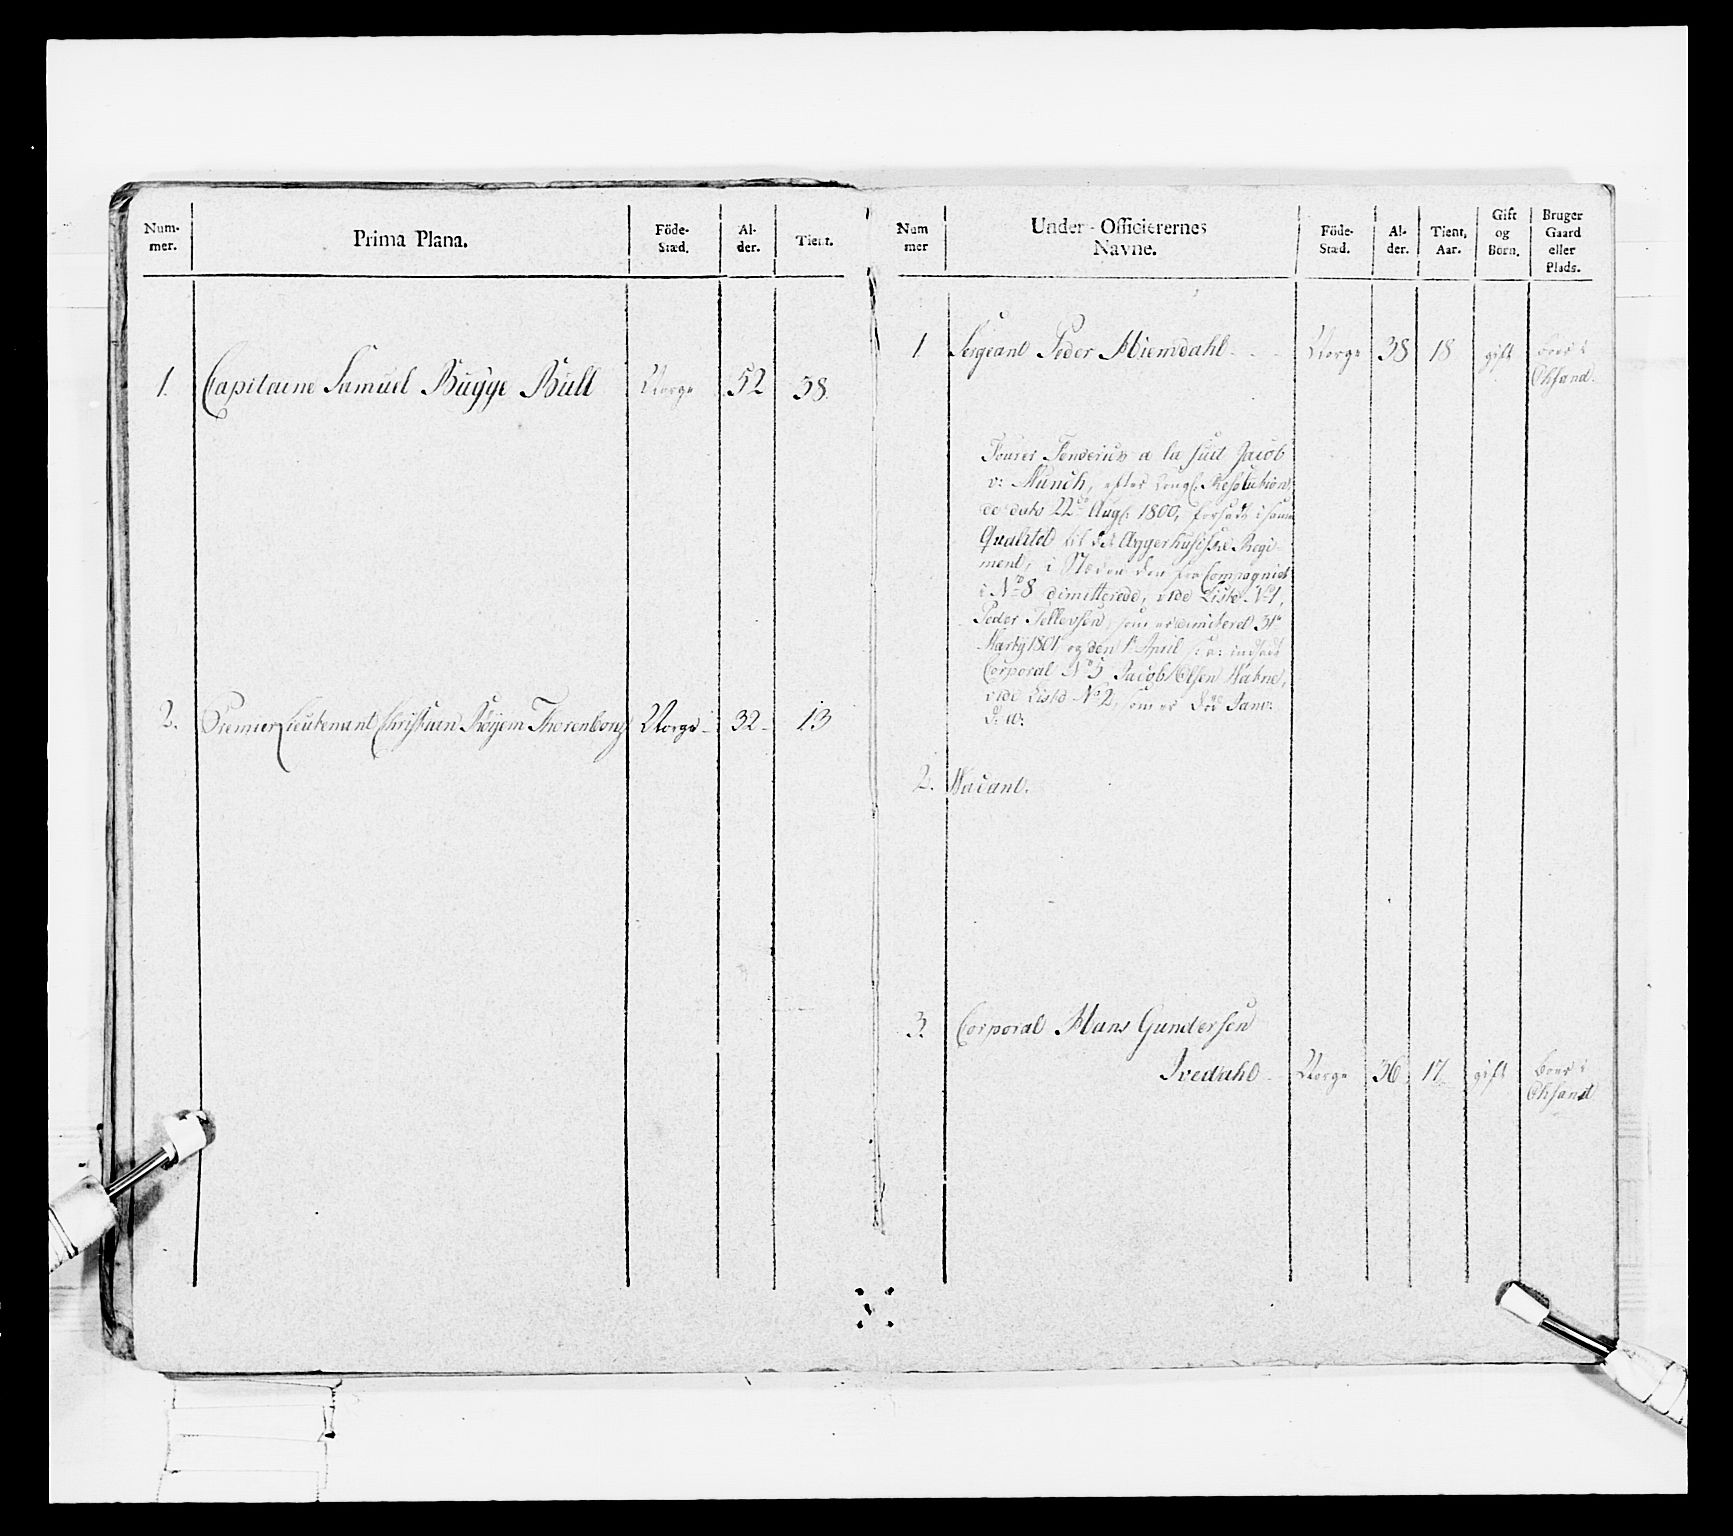 Num-
mer.
Prima Plana.
Föde-
Stæd.
Al-
der.
Tient.
1. Capitaine Samuel Bugge Bull Norge 52 38.
2. Premier Lieutenant Christian Thorenberg Norge 32 13
Num
mer
Under-Officierernes
Navne.
Föde-
Stæd.
Al-
der.
Tient,
Aar.
Gift
og
Börn.
Bruger
Gaard
eller
Plads.
1 Sergeant Peder Hiemdahl Norge 38 18 gift boer i
Oksand.
Fourer a la Suit Jacob
v: Munch, efter Kongl: Resolution
de dato 22de Aug: 1800, forsadt i samme
Qualitet til det Aggerhusiske Regi-
ment, i Steden den fra Compagniet
i No 8 dimitterede, vide Liste No 1,
Peder Tellevsen, som er dimiteret 31te
Marty 1801 og den 1te April indsadt
Corporal No 5 Jacob Olsen
vide Liste No 2, som er død Janv:
d: a:
2. Vacant.
3. Corporal Hans Gundersen
Ivedahl Norge 36 17 gift boer i
Oksand